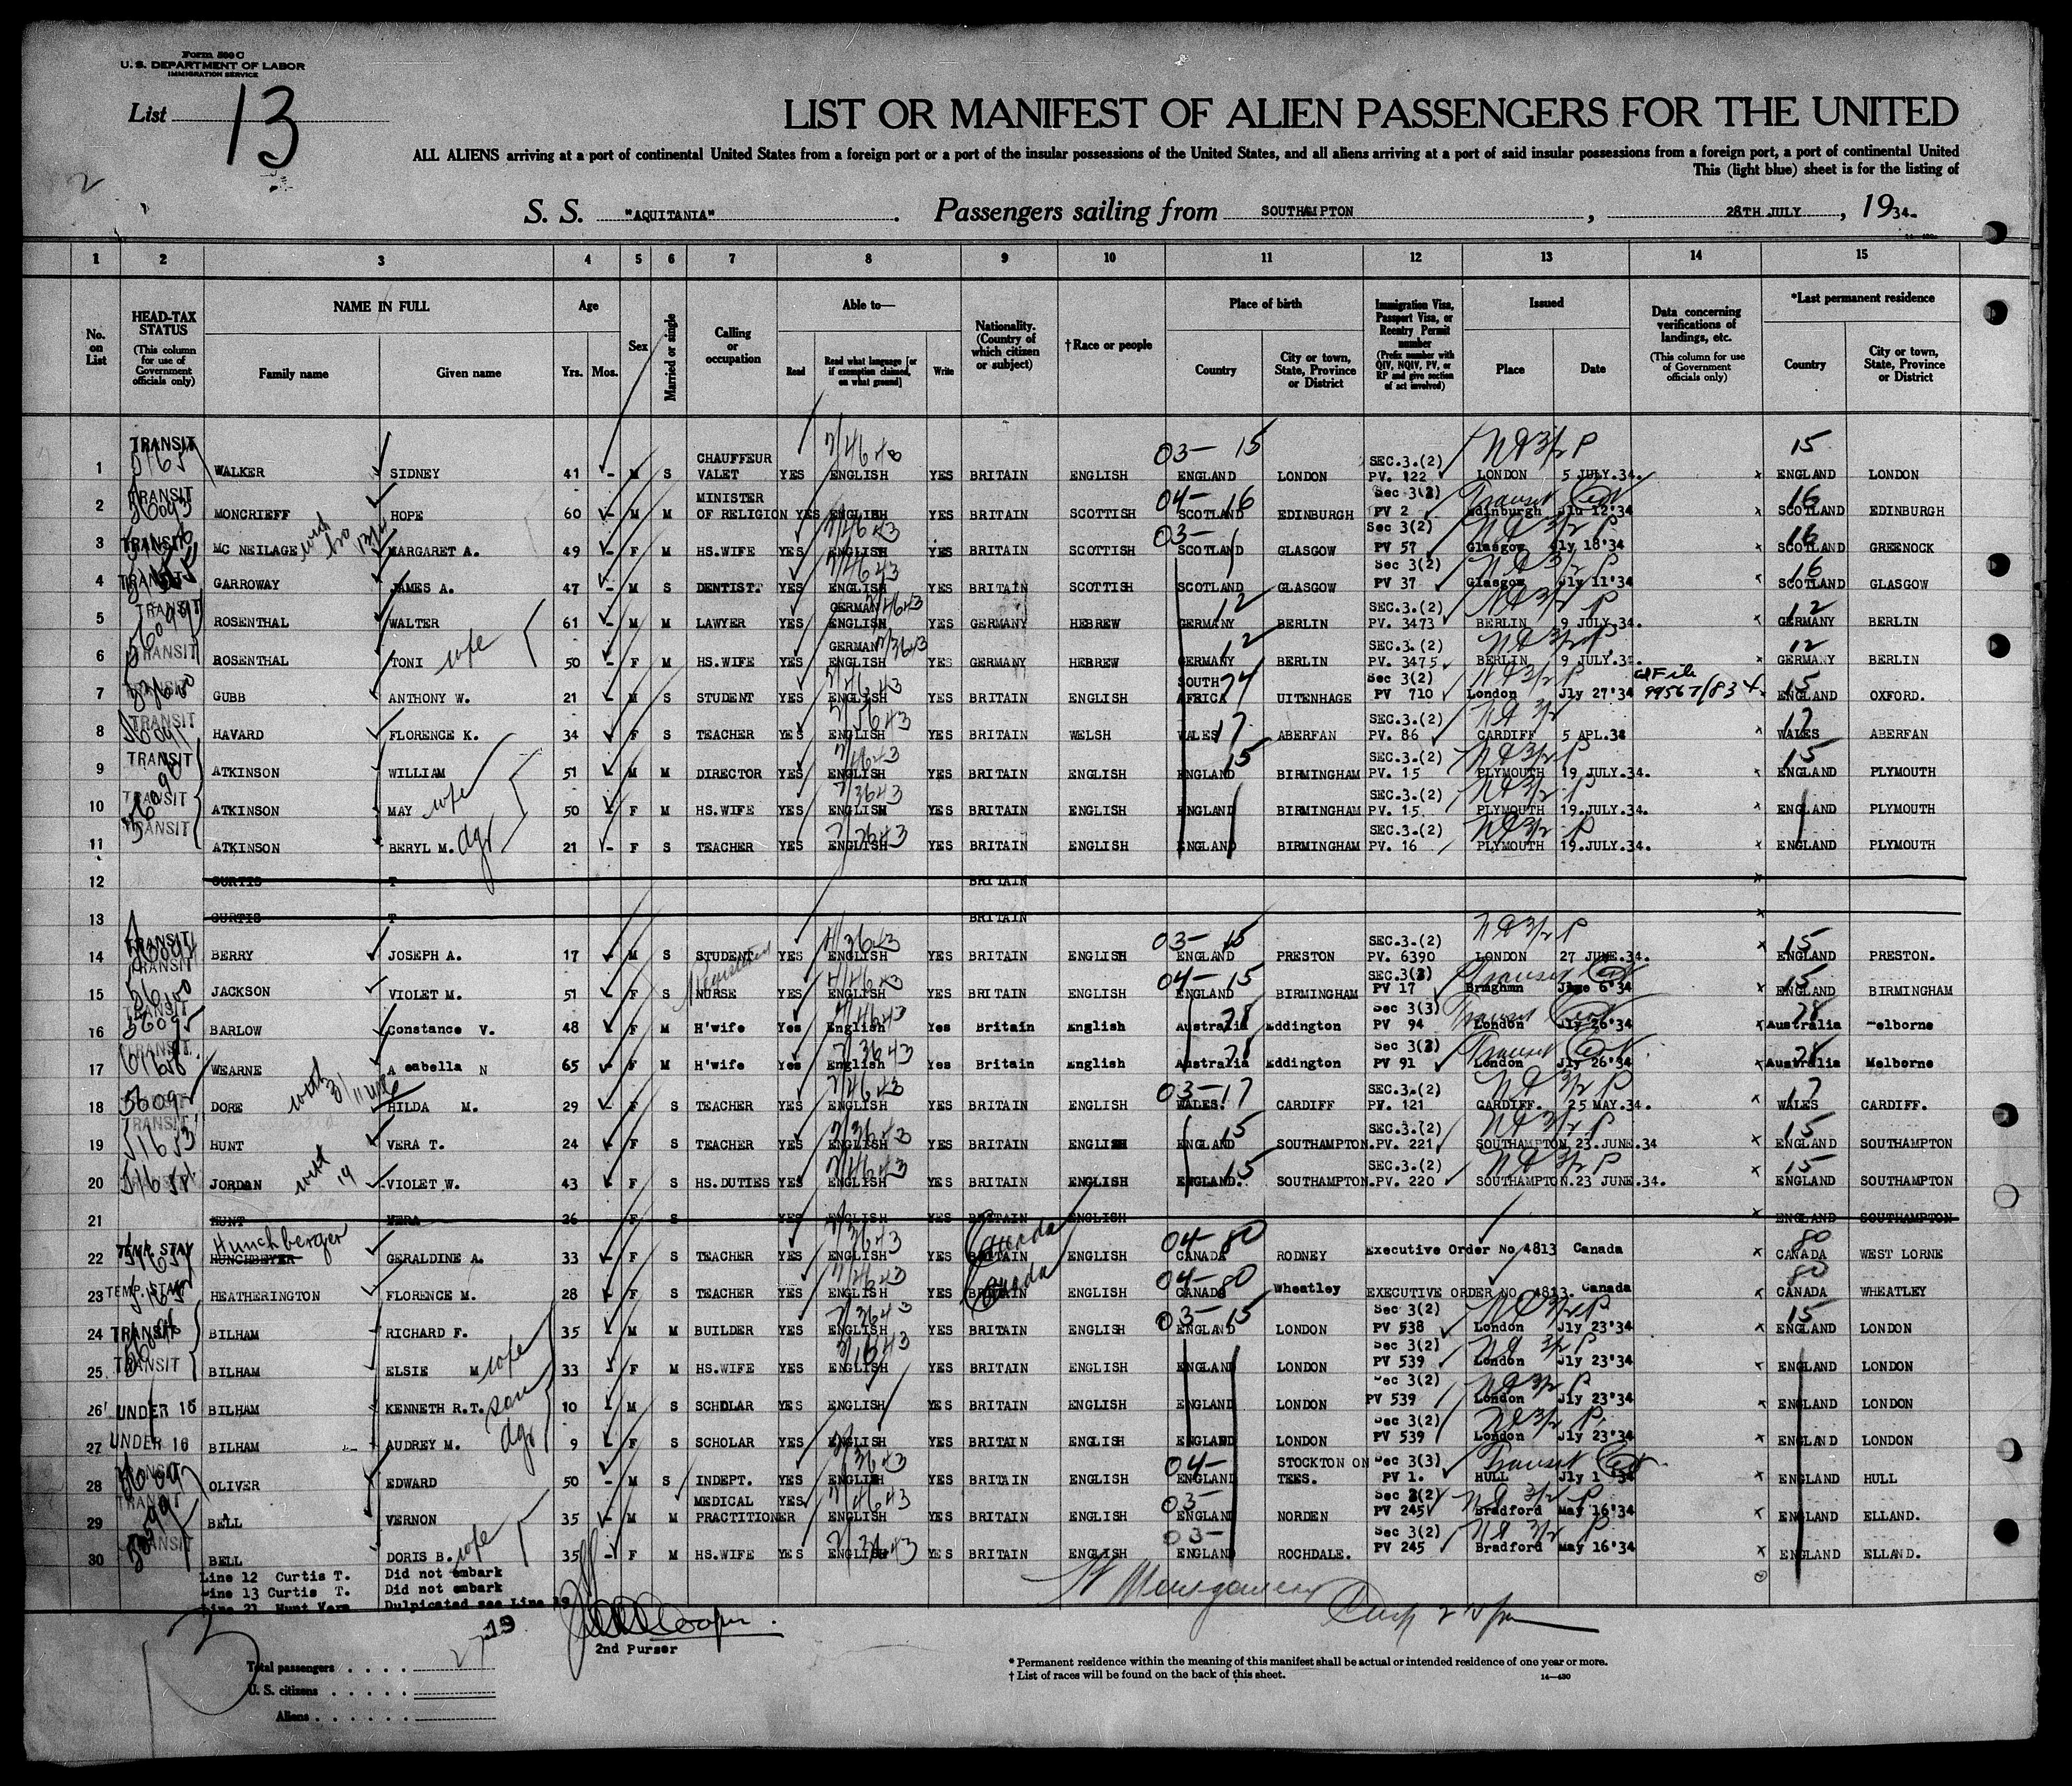 Form 500 C
U. S. DEPARTMENT OF LABOR
IMMIGRATION SERVICE
List 13
LIST OR MANIFEST OF ALIEN PASSENGERS FOR THE UNITED
ALL ALIENS arriving at a port of continental United States from a foreign port or a port of the insular possessions of the United States, and all aliens arriving at a port of said insular possessions from a foreign port, a port of continental United
This (light blue) sheet is for the listing of
2
S. S. "AQUITANIA". Passengers sailing from SOUTHAMPTON, 28TH JULY, 1934.
1 2 3 4 5 6 7 8 9 10 11 12 13 14 15
No. on List
HEAD-TAX STATUS (This column for use of Government officials only)
NAME IN FULL Family name Given name
Age Yrs. Mos.
Sex
Married or single
Calling or occupation
Able to— Read Read what language [or if exemption claimed, on what ground] Write
Nationality. (Country of which citizen or subject)
†Race or people
Place of birth Country City or town, State, Province or District
Immigration Visa, Passport Visa, or Reentry Permit number (Prefix number with QIV, NQIV, PV, or RP and give section of act involved)
Issued Place Date
Data concerning verifications of landings, etc. (This column for use of Government officials only)
*Last permanent residence Country City or town, State, Province or District
1 TRANSIT WALKER SIDNEY 41 - M S CHAUFFEUR VALET YES ENGLISH YES BRITAIN ENGLISH 03- 15 ENGLAND LONDON SEC.3.(2) PV. 122 LONDON 5 JULY.34. x 15 ENGLAND LONDON
2 TRANSIT MONCRIEFF HOPE 60 - M M MINISTER OF RELIGION YES ENGLISH YES BRITAIN SCOTTISH 04- 16 SCOTLAND EDINBURGH Sec 3(3) PV 2 Edinburgh Jlu 12'34 Transit x 16 SCOTLAND EDINBURGH
3 TRANSIT MC NEILAGE MARGARET A. 49 - F M HS.WIFE YES ENGLISH YES BRITAIN SCOTTISH 03- SCOTLAND GLASGOW Sec 3(2) PV 57 Glasgow Jly 18'34 x 16 SCOTLAND GREENOCK
4 TRANSIT GARROWAY JAMES A. 47 - M S DENTIST. YES ENGLISH YES BRITAIN SCOTTISH SCOTLAND GLASGOW Sec 3(2) PV 37 Glasgow Jly 11'34 x 16 SCOTLAND GLASGOW
5 TRANSIT ROSENTHAL WALTER 61 - M M LAWYER YES GERMAN ENGLISH YES GERMANY HEBREW 12 GERMANY BERLIN SEC.3.(2) PV. 3473 BERLIN 9 JULY.34. x 12 GERMANY BERLIN
6 TRANSIT ROSENTHAL TONI wife 50 - F M HS.WIFE YES GERMAN ENGLISH YES GERMANY HEBREW 12 GERMANY BERLIN SEC.3.(2) PV. 3475 BERLIN 9 JULY.34. x 12 GERMANY BERLIN
7 GUBB ANTHONY W. 21 - M S STUDENT YES ENGLISH YES BRITAIN ENGLISH SOUTH AFRICA 74 UITENHAGE Sec 3(2) PV 710 London Jly 27'34 File 99567/83 x 15 ENGLAND OXFORD.
8 TRANSIT HAVARD FLORENCE K. 34 - F S TEACHER YES ENGLISH YES BRITAIN WELSH WALES 17 ABERFAN SEC.3.(2) PV. 86 CARDIFF 5 APL.34 x 17 WALES ABERFAN
9 TRANSIT ATKINSON WILLIAM 51 - M M DIRECTOR YES ENGLISH YES BRITAIN ENGLISH 15 ENGLAND BIRMINGHAM SEC.3.(2) PV. 15 PLYMOUTH 19 JULY.34. x 15 ENGLAND PLYMOUTH
10 TRANSIT ATKINSON MAY wife 50 - F M HS.WIFE YES ENGLISH YES BRITAIN ENGLISH ENGLAND BIRMINGHAM SEC.3.(2) PV. 15 PLYMOUTH 19.JULY.34. x ENGLAND PLYMOUTH
11 TRANSIT ATKINSON BERYL M. dgr 21 - F S TEACHER YES ENGLISH YES BRITAIN ENGLISH ENGLAND BIRMINGHAM SEC.3.(2) PV. 16 PLYMOUTH 19.JULY.34. x ENGLAND PLYMOUTH
12 CURTIS T BRITAIN x
13 CURTIS T BRITAIN x
14 TRANSIT BERRY JOSEPH A. 17 - M S STUDENT YES ENGLISH YES BRITAIN ENGLISH 03- 15 ENGLAND PRESTON SEC.3.(2) PV. 6390 LONDON 27 JUNE.34. x 15 ENGLAND PRESTON.
15 TRANSIT JACKSON VIOLET M. 51 - F S Registered NURSE YES ENGLISH YES BRITAIN ENGLISH 04- 15 ENGLAND BIRMINGHAM SEC.3(3) PV 17 Brmghmn June 6'34 Transit x 15 ENGLAND BIRMINGHAM
16 TRANSIT BARLOW Constance V. 48 - F M H'wife Yes English Yes Britain English Australia 78 Eddington Sec 3(3) PV 94 London Jly 26'34 Transit x 78 Australia Melborne
17 TRANSIT WEARNE A eabella N 65 - F M H'wife Yes English Yes Britain English Australia 78 Eddington Sec 3(3) PV 91 London Jly 26'34 Transit x 78 Australia Melborne
18 DORE HILDA M. 29 - F S TEACHER YES ENGLISH YES BRITAIN ENGLISH 03-17 WALES. CARDIFF SEC.3.(2) PV. 121 CARDIFF. 25 MAY.34. x 17 WALES CARDIFF.
19 TRANSIT 51653 HUNT VERA T. 24 - F S TEACHER YES ENGLISH YES BRITAIN ENGLISH 15 ENGLAND SOUTHAMPTON. SEC.3.(2) PV. 221 SOUTHAMPTON 23.JUNE.34 x 15 ENGLAND SOUTHAMPTON
20 JORDAN with 19 VIOLET W. 43 - F S HS.DUTIES YES ENGLISH YES BRITAIN ENGLISH 15 ENGLAND. SOUTHAMPTON. SEC.3.(2) PV. 220 SOUTHAMPTON.23 JUNE.34. x 15 ENGLAND SOUTHAMPTON
21 HUNT VERA 26 F S YES ENGLISH YES BRITAIN ENGLISH ENGLAND SOUTHAMPTON
22 TEMP. STAY Hunchberger HUNCHBEYER GERALDINE A. 33 - F S TEACHER YES ENGLISH YES BRITAIN Canada ENGLISH 04- 80 CANADA RODNEY Executive Order No 4813 Canada x 80 CANADA WEST LORNE
23 TEMP. STAY HEATHERINGTON FLORENCE M. 28 - F S TEACHER YES ENGLISH YES BRITAIN Canada ENGLISH 04-80 CANADA Wheatley EXECUTIVE ORDER NO. 4813. Canada x 80 CANADA WHEATLEY
24 TRANSIT BILHAM RICHARD F. 35 - M M BUILDER YES ENGLISH YES BRITAIN ENGLISH 03-15 ENGLAND LONDON Sec 3(2) PV 538 London Jly 23'34 x 15 ENGLAND LONDON
25 TRANSIT BILHAM ELSIE M wife 33 - F M HS.WIFE YES ENGLISH YES BRITAIN ENGLISH ENGLAND LONDON Sec 3(2) PV 539 London Jly 23'34 x ENGLAND LONDON
26 UNDER 16 BILHAM KENNETH R.T. son 10 - M S SCHOLAR YES ENGLISH YES BRITAIN ENGLISH ENGLAND LONDON Sec 3(2) PV 539 London Jly 23'34 x ENGLAND LONDON
27 UNDER 16 BILHAM AUDREY M. dgr 9 - F S SCHOLAR YES ENGLISH YES BRITAIN ENGLISH ENGLAND LONDON Sec 3(2) PV 539 London Jly 23'34 x ENGLAND LONDON
28 TRANSIT OLIVER EDWARD 50 - M S INDEPT. YES ENGLISH YES BRITAIN ENGLISH 04- ENGLAND STOCKTON ON TEES. Sec 3(3) PV 1. HULL Jly 1 '34 Transit x ENGLAND HULL
29 TRANSIT BELL VERNON 35 - M M MEDICAL PRACTITIONER YES ENGLISH YES BRITAIN ENGLISH 03- ENGLAND NORDEN Sec 3(2) PV 245 Bradford May 16'34 x ENGLAND ELLAND.
30 TRANSIT BELL DORIS B. wife 35 - F M HS.WIFE YES ENGLISH YES BRITAIN ENGLISH 03- ENGLAND ROCHDALE. Sec 3(2) PV 245 Bradford May 16'34 x ENGLAND ELLAND.
Line 12 Curtis T. Did not embark
Line 13 Curtis T. Did not embark
Line 21 Hunt Vera Dulpicated see Line 19
19
Cooper.
2nd Purser
Total passengers . . . . 27
U. S. citizens . . . . .
Aliens . . . . . .
* Permanent residence within the meaning of this manifest shall be actual or intended residence of one year or more.
† List of races will be found on the back of this sheet.
14—430